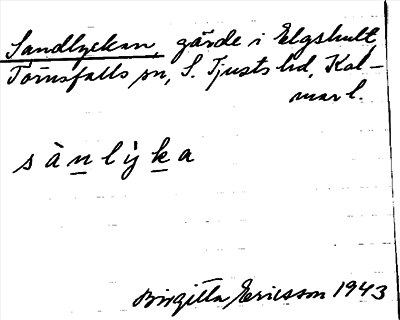 Sandlyckan, gärde i Elgshult
Törnsfalls sn, S. Tjusts hd, Kal-
mar l.
sànlỳka
Birgitta Ericsson 1943